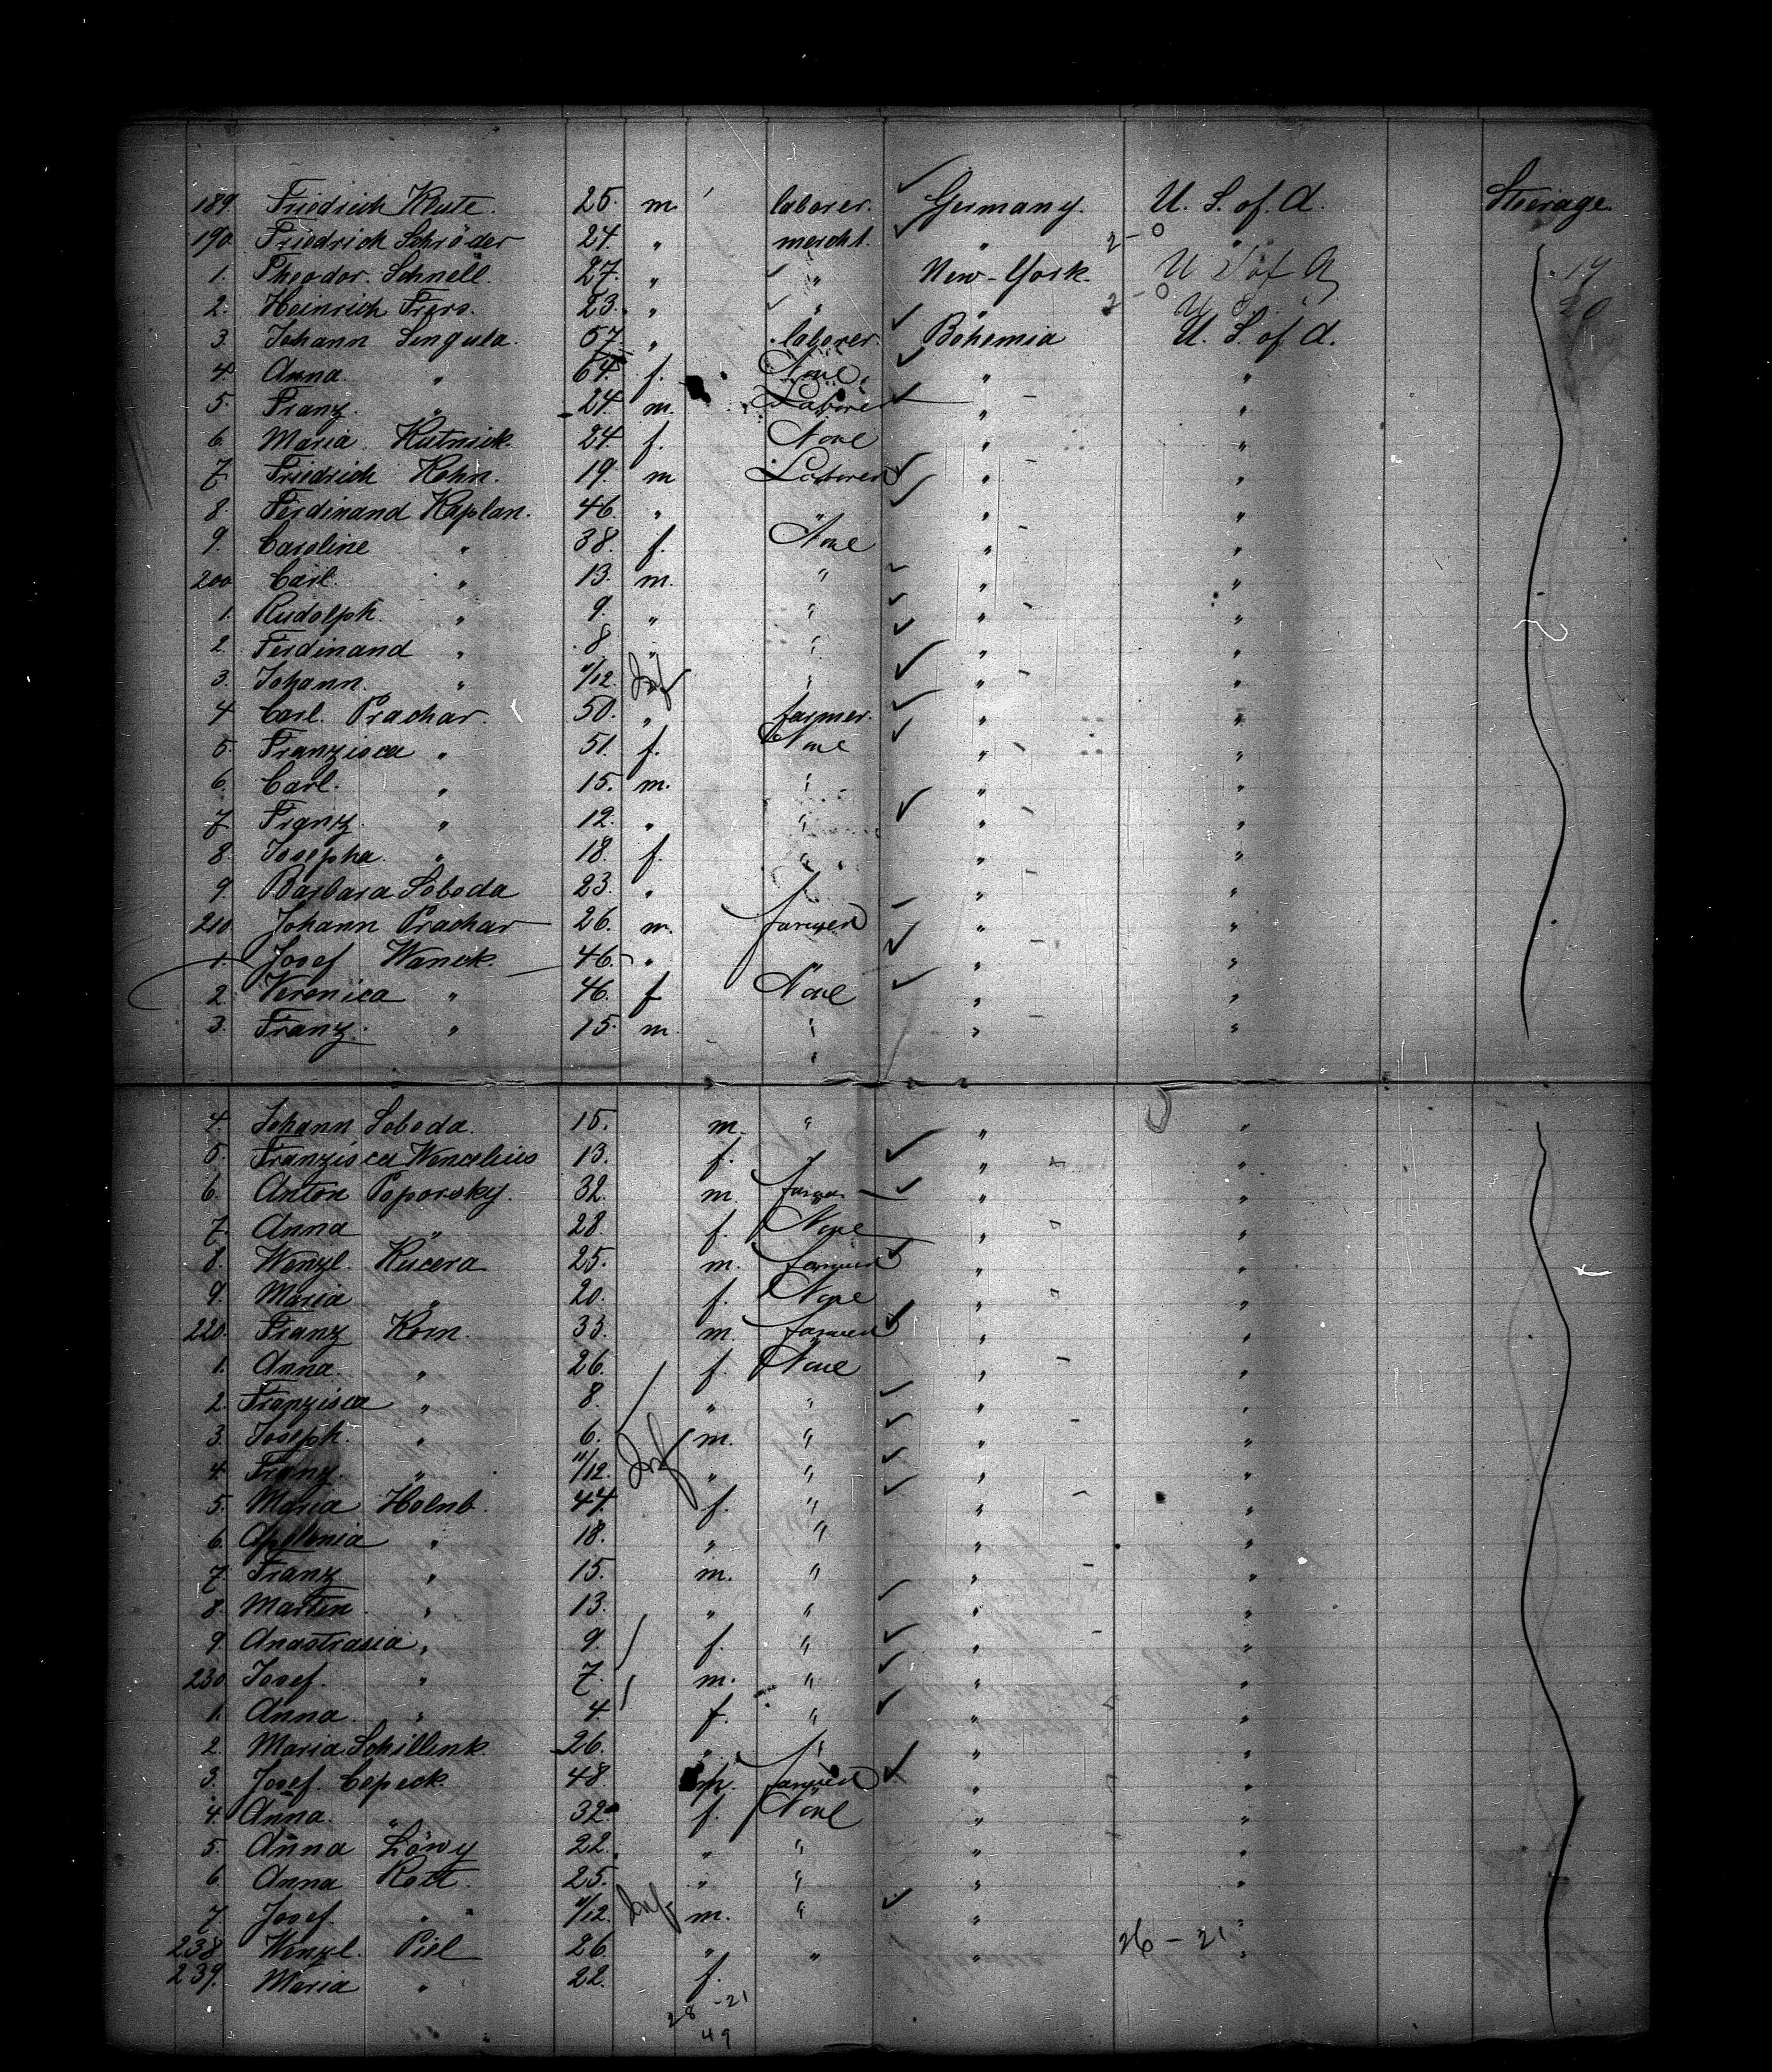 189. Friedrich Klute. 25. m. laborer. Germany. U. S. of A. Steerage.
190. Friedrich Schröder 24. " mercht. " 2-0 "
1. Theodor Schnell. 27. " " New-York. U S of A 19
2. Heinrich Frers. 23. " " " 2-0 U S 20
3. Johann Singula. 57. " laborer. Bohemia U. S. of A.
4. Anna " 64. f. None " "
5. Franz " 24. m. Laborer " "
6. Maria Kutnick. 24 f. None " "
7. Friedrich Kohn. 19. m Laborer " "
8. Ferdinand Kaplan. 46. " " " "
9. Caroline " 38. f. None " "
200 Carl " 13. m. " " "
1. Rudolph. " 9. " " " "
2. Ferdinand " 8. " " " "
3. Johann. " 11/12. Inf " " "
4 Carl. Prachar. 50. " farmer. " "
5. Franzisca " 51. f. None " "
6. Carl. " 15. m. " " "
7. Franz. " 12. " " " "
8. Josepha. " 18. f. " " "
9. Barbara Soboda 23. " " " "
210 Johann Prachar 26. m. farmer " "
1. Josef Wanek. 46. " " " "
2. Veronica " 46. f None " "
3. Franz. " 15. m. " " "
4. Johann Soboda. 15. m. " " "
5. Franzisca 13. f. " " "
6. Anton Poporsky. 32. m. farmer " "
7. Anna " 28. f. None " "
8. Wenzl. Kucera 25. m. farmer " "
9. Maria " 20. f. None " "
220. Franz Korn. 33. m. farmer " "
1. Anna. " 26. f. None " "
2. Franzisca " 8. " " " "
3. Joseph. " 6. m. " " "
4. Franz. " 11/12. Inf " " " "
5. Maria Holub. 44. f. " " "
6. Apollonia " 18. " " " "
7. Franz " 15. m. " " "
8. Martin " 13. " " " "
9. Anastrasia " 9. f. " " "
230. Josef. " 7. m. " " "
1. Anna. " 4. f. " " "
2. Maria Schillink. 26. " " " "
3. Josef. Capeck. 48. m. farmer " "
4. Anna. " 32. f. None " "
5. Anna Löwy 22. " " " "
6. Anna Rott. 25. " " " "
7. Josef. " 11/12. Inf m. " " "
238 Wenzl. Piel 26. " " " 26-21 "
239. Maria " 22. f.
28 -21
49